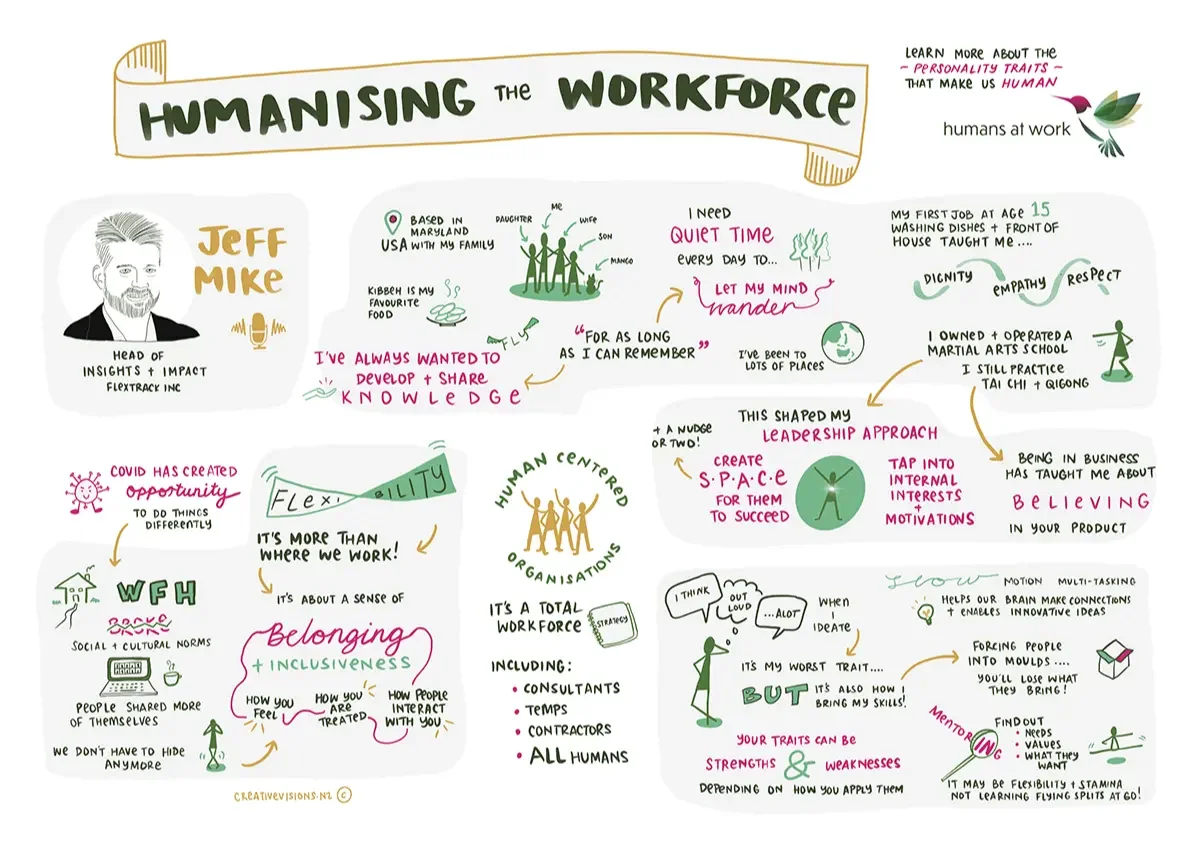 HUMANISING THE WORKFORCE
LEARN MORE ABOUT THE
~ PERSONALITY TRAITS ~
THAT MAKE US HUMAN
humans at work
JEFF
MIKE
HEAD OF
INSIGHTS + IMPACT
FLEXTRACK INC
BASED IN
MARYLAND
USA WITH MY FAMILY
DAUGHTER
ME
WIFE
SON
MANGO
KIBBEH IS MY
FAVOURITE
FOOD
FLY
I'VE ALWAYS WANTED TO
DEVELOP + SHARE
KNOWLEDGE
"FOR AS LONG
AS I CAN REMEMBER"
I NEED
QUIET TIME
EVERY DAY TO...
LET MY MIND
wander
I'VE BEEN TO
LOTS OF PLACES
MY FIRST JOB AT AGE 15
WASHING DISHES + FRONT OF
HOUSE TAUGHT ME ....
DIGNITY
EMPATHY
RESPECT
I OWNED + OPERATED A
MARTIAL ARTS SCHOOL
I STILL PRACTICE
TAI CHI + QIGONG
THIS SHAPED MY
LEADERSHIP APPROACH
+ A NUDGE
OR TWO!
CREATE
S.P.A.C.E
FOR THEM
TO SUCCEED
TAP INTO
INTERNAL
INTERESTS
+
MOTIVATIONS
BEING IN BUSINESS
HAS TAUGHT ME ABOUT
BELIEVING
IN YOUR PRODUCT
COVID HAS CREATED
opportunity
TO DO THINGS
DIFFERENTLY
WFH
BROKE
SOCIAL + CULTURAL NORMS
PEOPLE SHARED MORE
OF THEMSELVES
WE DON'T HAVE TO HIDE
ANYMORE
FLEXIBILITY
IT'S MORE THAN
WHERE WE WORK!
IT'S ABOUT A SENSE OF
Belonging
+ INCLUSIVENESS
HOW YOU
FEEL
HOW YOU
ARE
TREATED
HOW PEOPLE
INTERACT
WITH YOU
CREATIVEVISIONS.NZ ©
HUMAN CENTERED
ORGANISATIONS
IT'S A TOTAL
WORKFORCE
STRATEGY
INCLUDING:
• CONSULTANTS
• TEMPS
• CONTRACTORS
• ALL HUMANS
I THINK
OUT
LOUD
...ALOT
WHEN
I
IDEATE
IT'S MY WORST TRAIT....
BUT IT'S ALSO HOW I
BRING MY SKILLS!
YOUR TRAITS CAN BE
STRENGTHS & WEAKNESSES
DEPENDING ON HOW YOU APPLY THEM
slow MOTION MULTI-TASKING
HELPS OUR BRAIN MAKE CONNECTIONS
+ ENABLES INNOVATIVE IDEAS
FORCING PEOPLE
INTO MOULDS ....
YOU'LL LOSE WHAT
THEY BRING!
MENTORING
FIND OUT
• NEEDS
• VALUES
• WHAT THEY
WANT
IT MAY BE FLEXIBILITY + STAMINA
NOT LEARNING FLYING SPLITS AT GO!